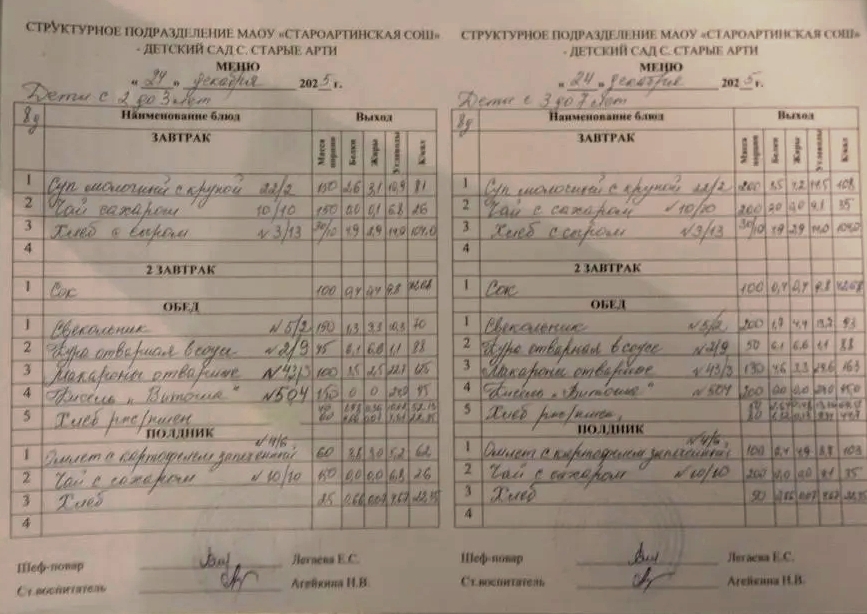 СТРУКТУРНОЕ ПОДРАЗДЕЛЕНИЕ МАОУ «СТАРОАРТИНСКАЯ СОШ»
- ДЕТСКИЙ САД С. СТАРЫЕ АРТИ
МЕНЮ
« 24 » декабря 2025 г.
Дети с 2 до 3 лет
8д Наименование блюд Выход
ЗАВТРАК Масса порции Белки Жиры Углеводы К/кал
1 Суп молочный с крупой 22/2 150 2,6 3,1 81
2 Чай сахаром 10/10 150 0,0 0,1 6,8 26
3 Хлеб с сыром №3/13 30/10 4,9 2,9
4
2 ЗАВТРАК
1 Сок 100 0,4 0,4 9,8
ОБЕД
1 Свекольник №5/2 150 1,3 3,3 10,3 70
2 Кура отварная в соусе №2/9 45 6,1 6,6 1,1 88
3 Макароны отварные №43/3 100 3,5 2,5
4 Кисель „Витоша" №504 150 0 0 24,0 95
5 Хлеб рж/пшен
ПОЛДНИК
№4/6
1 Омлет с картофелем запеченный 60 3,8 3,0 5,2 62
2 Чай с сахаром №10/10 150 0,0 0,0 6,8 26
3 Хлеб 25 0,07
4
Шеф-повар Легаева Е.С.
Ст.воспитатель Агейкина Н.В.
СТРУКТУРНОЕ ПОДРАЗДЕЛЕНИЕ МАОУ «СТАРОАРТИНСКАЯ СОШ»
- ДЕТСКИЙ САД С. СТАРЫЕ АРТИ
МЕНЮ
« 24 » декабря 2025 г.
Дети с 3 до 7 лет
8д Наименование блюд Выход
ЗАВТРАК Масса порции Белки Жиры Углеводы К/кал
1 Суп молочный с крупой 22/2 200 3,5 4,2 108
2 Чай с сахаром №10/10 200 0,0 9,1 35
3 Хлеб с сыром №3/13 30/10 4,9 2,9
4
2 ЗАВТРАК
1 Сок 100 0,4 0,4 9,8
ОБЕД
1 Свекольник №5/2 200 1,7 4,4 93
2 Кура отварная в соусе №2/9 50 6,1 6,6 1,1 88
3 Макароны отварные №43/3 130 4,6 3,3 163
4 Кисель „Витоша" №504 200 0,0 0,0 24,0 95,0
5 Хлеб рж/пшен,
ПОЛДНИК
№4/6,
1 Омлет с картофелем запеченный 100 4,9 103
2 Чай с сахаром №10/10 200 0,0 0,0 9,1 35
3 Хлеб 0,07
4
Шеф-повар Легаева Е.С.
Ст.воспитатель Агейкина Н.В.